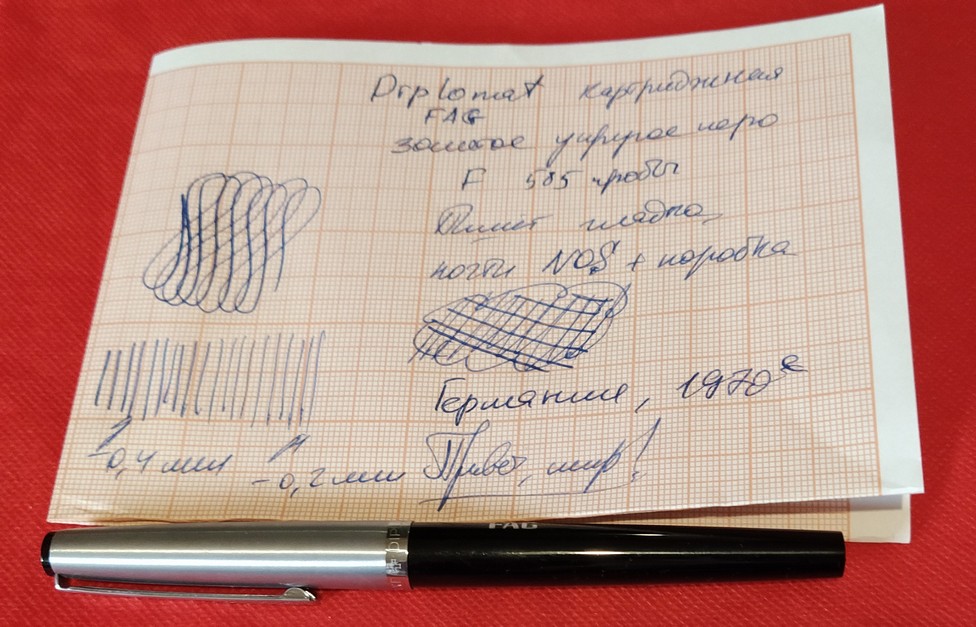 Diplomat картриджная
FAG
золотое упругое перо
F 585 пробы
Пишет гладко
почти NOS + коробка
Германия, 1970е
~0,4 мм
~0,2 мм
Привет, мир!
FAG